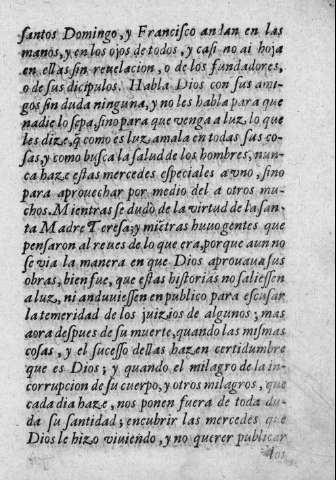 santos Domingo, y Francisco andan en las
manos, y en los ojos de todos, y casi no ai hoja
en ellas sin reuelacion, o de los fundadores,
o de sus dicipulos. Habla Dios con sus ami-
gos sin duda ninguna, y no les habla para que
nadie lo sepa, sino para que venga a luz, lo que
les dize, q̃ como es luz, amala en todas sus co-
sas, y como busca la salud de los hombres, nun-
ca haze estas mercedes especiales a vno, sino
para aprouechar por medio del a otros mu-
chos. Mientras se dudò de la virtud de la san-
ta Madre Teresa, y miẽtras huuo gentes que
pensaron al reues de lo que era, porque aun no
se via la manera en que Dios aprouaua sus
obras, bien fue, que estas historias no saliessen
a luz, ni anduuiessen en publico para escusar
la temeridad de los juizios de algunos; mas
aora despues de su muerte, quando las mismas
cosas, y el sucesso dellas hazen certidumbre
que es Dios; y quando el milagro de la in-
corrupcion de su cuerpo, y otros milagros, que
cada dia haze, nos ponen fuera de toda du-
da su santidad; encubrir las mercedes que
Dios le hizo viuiendo, y no querer publicar
los